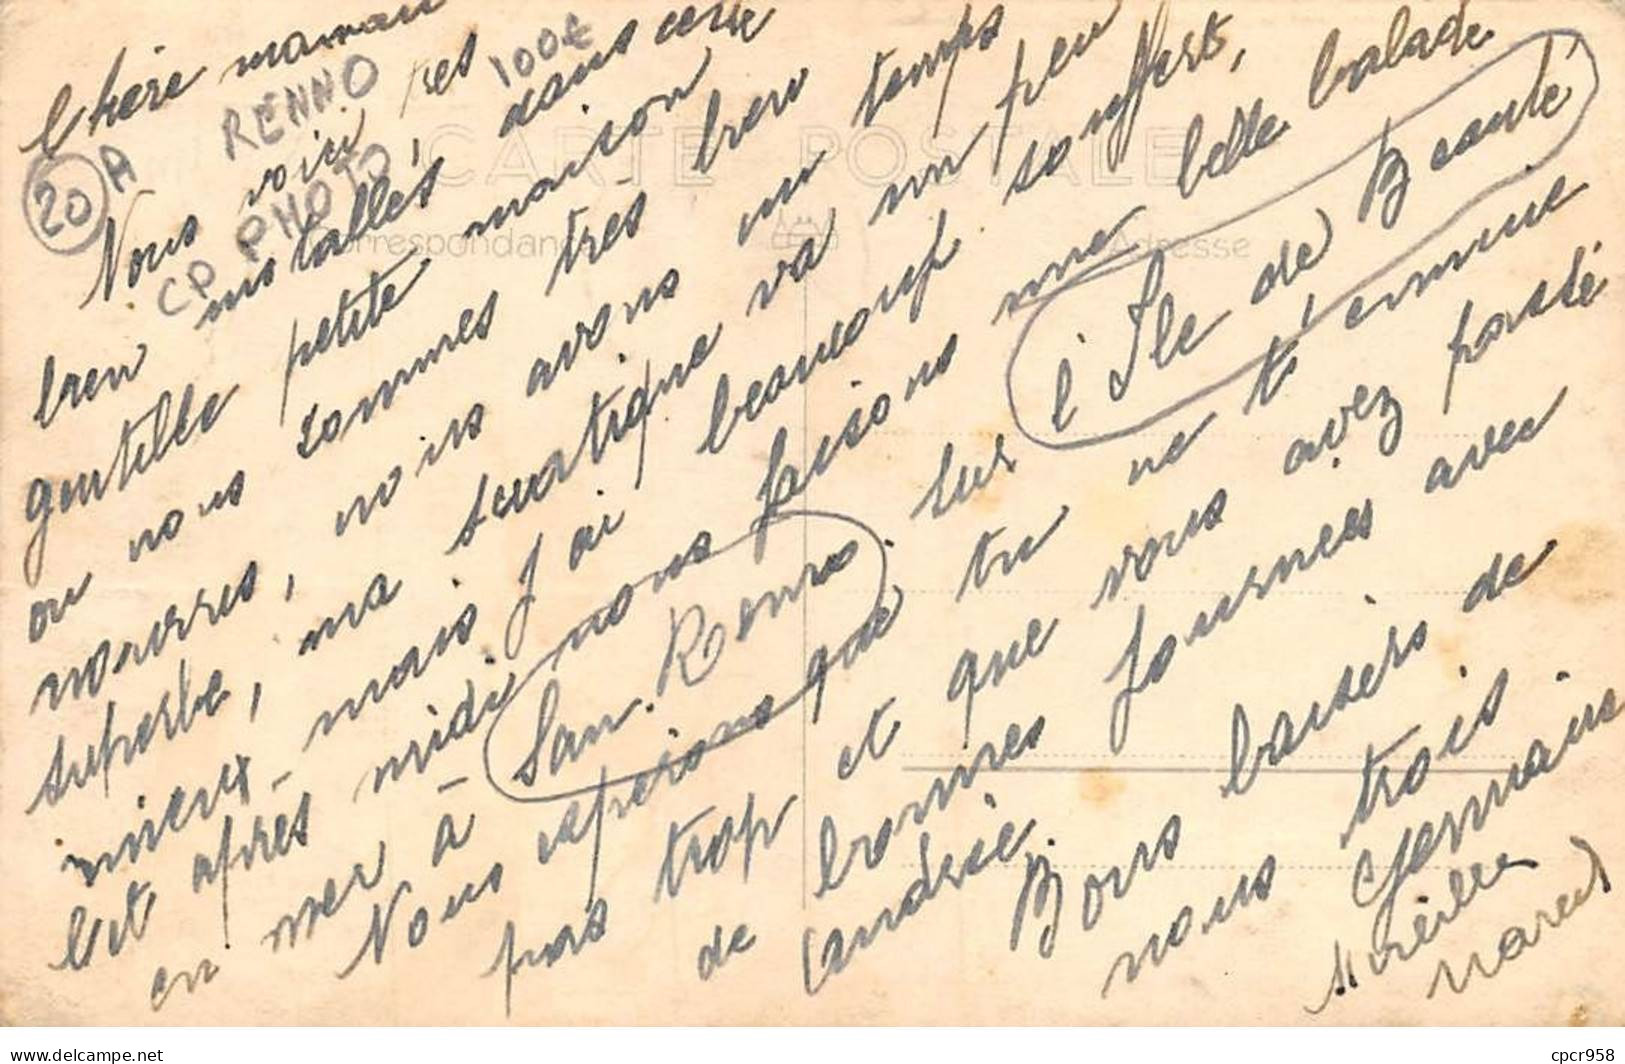 Chère maman
Nous voici très
bien installés, dans cette
gentille petite maison
ou nous sommes très bien
nourris, nous avons un temps
superbe, ma sciatique va un peu
mieux mais j'ai beaucoup souffert,
Cet après midi nous faisons une belle balade
en mer à San Remo sur l'Ile de Beauté
Nous espérons que tu ne t'ennuie
pas trop et que vous avez passé
de bonnes journées avec
Andrée
Bons baisers de
nous trois
Germaine
Mireille
Marcel
RENNO
100€
20 A
CP PHOTO
CARTE POSTALE
Correspondance
Adresse
Delcampe.net
cpcr958